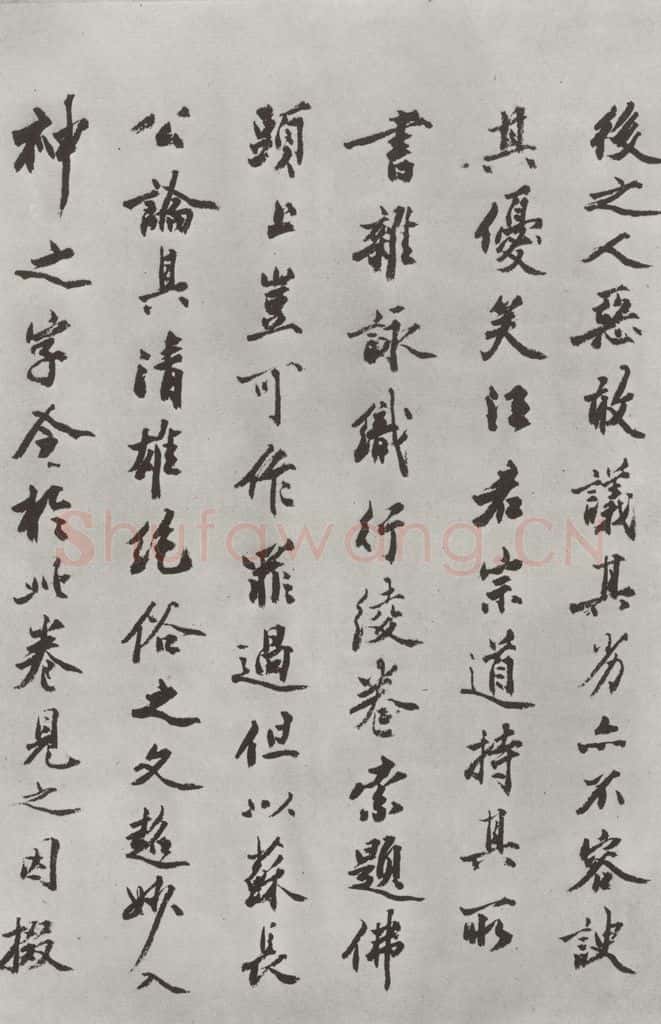 後之人惡敢議其劣亦不容諛
其優矣汪君宗道持其所
書雜詠織行綾卷索題佛
頭上豈可作罪過但以蘇長
公論具清雄絕俗之文超妙入
神之字今於此卷見之因掇
Shufawang.CN